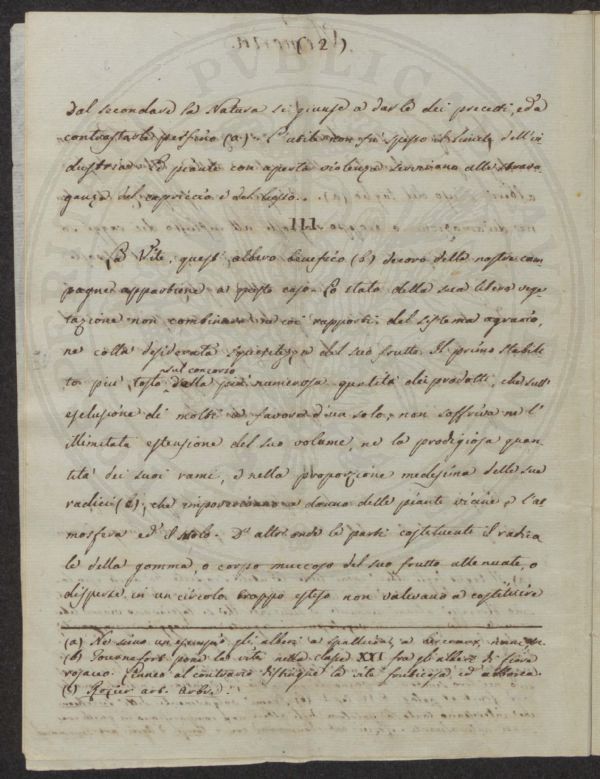 (2).
dal secondare la Natura si giunse a darle dei precetti, ed a
contrastarle persino (a). L'utile non fù spesso il limite dell'in
dustria. Le piante con aperta violenza servirono alle strava
ganze del capriccio e del lusso.
III
La Vite, quest'albero benefico (b) decoro delle nostre cam
pagne appartiene a questo caso. Lo stato della sua libera vege
tazione non combinava ne coi rapporti del sistema agrario,
ne colla desiderata squisitezza del suo frutto. Il primo stabili
to più tosto sul concorso della più numerosa quantità dei prodotti, che sull'
esclusione di molti a favore d'un solo, non soffriva ne l'
illimitata estensione del suo volume, ne la prodigiosa quan
tità dei suoi rami, e nella proporzione medesima delle sue
radici (c), che impoverivano a danno delle piante vicine, l'at
mosfera ed il suolo. D'altronde le parti costituenti il radica
le della gomma, o corpo muccoso del suo frutto attenuate, o
disperse in un circolo troppo esteso non valevano a costituire
(a) Ne siano un esempio gli alberi a spalliera, a
(b) Tournefort pone la vite nella classe XXI fra gli alberi di fiore
rosaceo. Linneo al contrario distingue la vite fruticosa, ed arborea.
(c) Rozier art. Arbre.